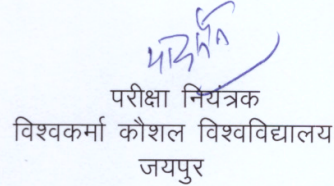 परीक्षा नियंत्रक
विश्वकर्मा कौशल विश्वविद्यालय
जयपुर